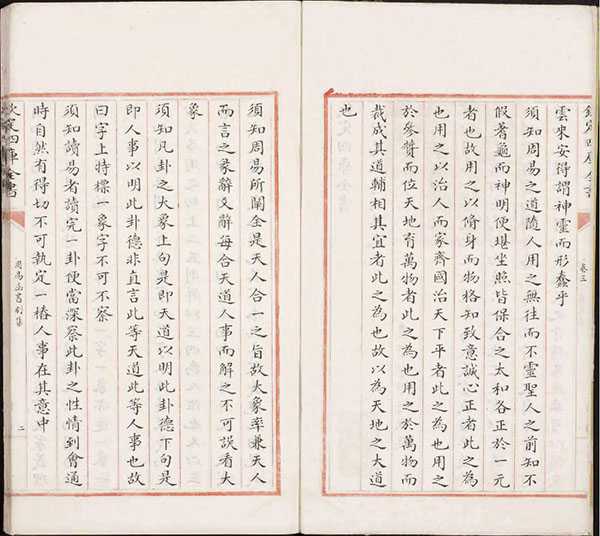 欽定四庫全書
卷三
雲來安得謂神靈而形蠢乎
須知周易之道隨人用之無往而不靈聖人之前知不
假蓍龜而神明便堪坐照皆保合之太和各正於一元
者也故用之以脩身而物格知致意誠心正者此之為
也用之以治人而家齊國治天下平者此之為也用之
於參贊而位天地育萬物者此之為也用之於萬物而
裁成其道輔相其宜者此之為也故以為天地之大道
也
須知周易所闡全是天人合一之旨故大象率兼天人
而言之彖辭爻辭每合天道人事而解之不可誤看大
象
須知凡卦之大象上句是即天道以明此卦德下句是
即人事以明此卦德非直言此等天道此等人事也故
曰字上特標一象字不可不察
須知讀易者讀完一卦便當深察此卦之性情到會通
時自然有得切不可執定一樁人事在其意中
欽定四庫全書
周易函書別集
二